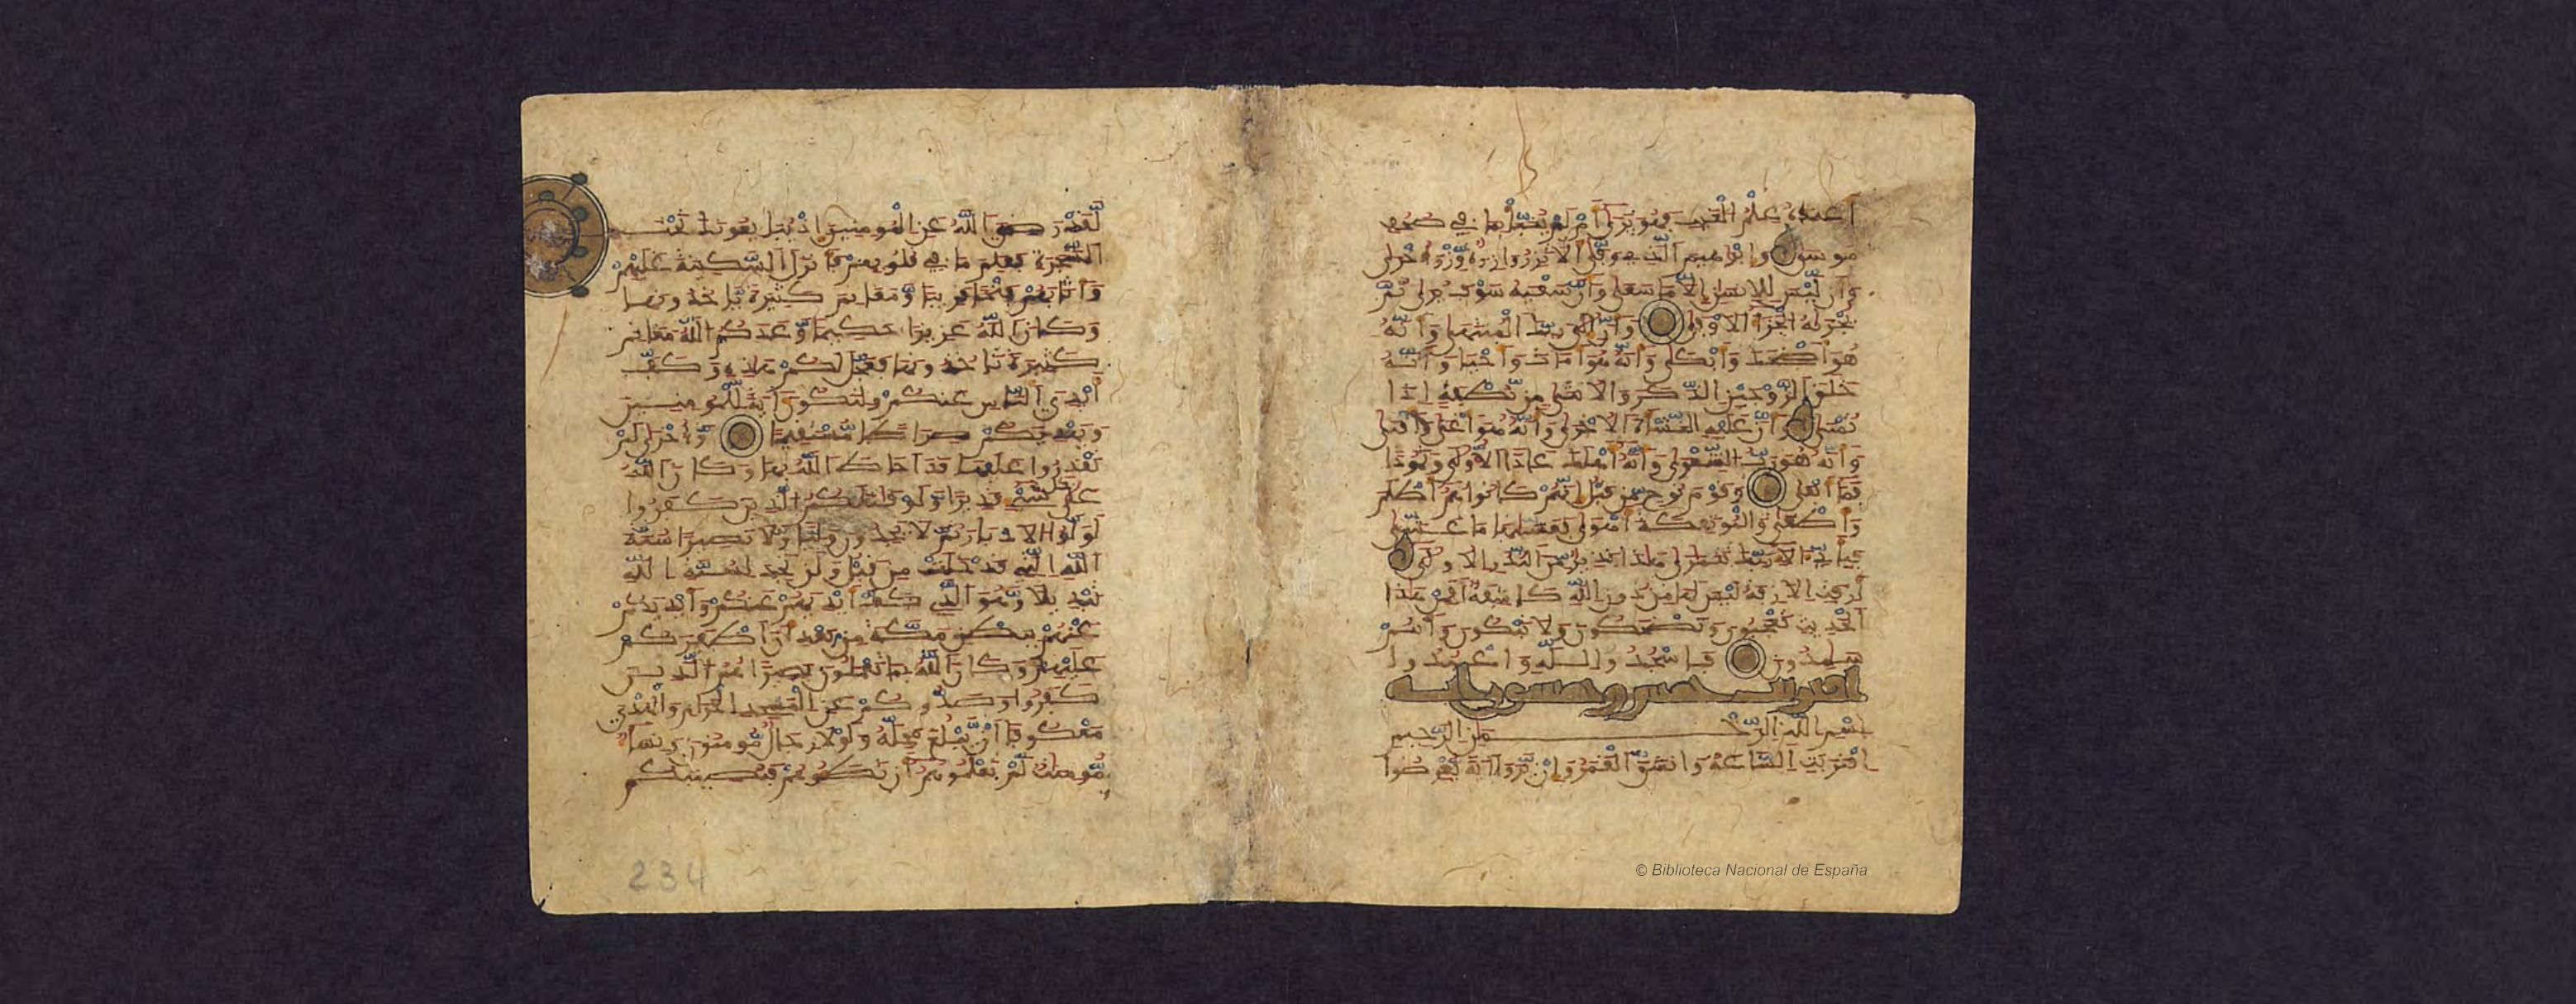 أَعِندَهُ عِلْمُ الْغَيْبِ فَهُوَ يَرَىٰ أَمْ لَمْ يُنَبَّأْ بِمَا فِي صُحُفِ
مُوسَىٰ وَإِبْرَٰهِيمَ الَّذِي وَفَّىٰ أَلَّا تَزِرُ وَازِرَةٌ وِزْرَ أُخْرَىٰ
وَأَن لَّيْسَ لِلْإِنسَٰنِ إِلَّا مَا سَعَىٰ وَأَنَّ سَعْيَهُ سَوْفَ يُرَىٰ ثُمَّ
يُجْزَىٰهُ الْجَزَاءَ الْأَوْفَىٰ وَأَنَّ إِلَىٰ رَبِّكَ الْمُنتَهَىٰ وَأَنَّهُ
هُوَ أَضْحَكَ وَأَبْكَىٰ وَأَنَّهُ هُوَ أَمَاتَ وَأَحْيَا وَأَنَّهُ
خَلَقَ الزَّوْجَيْنِ الذَّكَرَ وَالْأُنثَىٰ مِن نُّطْفَةٍ إِذَا
تُمْنَىٰ وَأَنَّ عَلَيْهِ النَّشْأَةَ الْأُخْرَىٰ وَأَنَّهُ هُوَ أَغْنَىٰ وَأَقْنَىٰ
وَأَنَّهُ هُوَ رَبُّ الشِّعْرَىٰ وَأَنَّهُ أَهْلَكَ عَادًا الْأُولَىٰ وَثَمُودًا
فَمَا أَبْقَىٰ وَقَوْمَ نُوحٍ مِّن قَبْلُ إِنَّهُمْ كَانُوا هُمْ أَظْلَمَ
وَأَطْغَىٰ وَالْمُوتَفِكَةَ أَهْوَىٰ فَغَشَّىٰهَا مَا غَشَّىٰ
فَبِأَيِّ ءَالَاءِ رَبِّكَ تَتَمَارَىٰ هَٰذَا نَذِيرٌ مِّنَ النُّذُرِ الْأُولَىٰ
أَزِفَتِ الْآزِفَةُ لَيْسَ لَهَا مِن دُونِ اللَّهِ كَاشِفَةٌ أَفَمِنْ هَٰذَا
الْحَدِيثِ تَعْجَبُونَ وَتَضْحَكُونَ وَلَا تَبْكُونَ وَأَنتُمْ
سَٰمِدُونَ فَاسْجُدُوا لِلَّهِ وَاعْبُدُوا
اقتربت خمس وخمسون ءاية
بِسْمِ اللَّهِ الرَّحْمَٰنِ الرَّحِيمِ
اقْتَرَبَتِ السَّاعَةُ وَانشَقَّ الْقَمَرُ وَإِن يَرَوْا ءَايَةً يُعْرِضُوا
لَّقَدْ رَضِيَ اللَّهُ عَنِ الْمُومِنِينَ إِذْ يُبَايِعُونَكَ تَحْتَ
الشَّجَرَةِ فَعَلِمَ مَا فِي قُلُوبِهِمْ فَأَنزَلَ السَّكِينَةَ عَلَيْهِمْ
وَأَثَٰبَهُمْ فَتْحًا قَرِيبًا وَمَغَانِمَ كَثِيرَةً يَاخُذُونَهَا
وَكَانَ اللَّهُ عَزِيزًا حَكِيمًا وَعَدَكُمُ اللَّهُ مَغَانِمَ
كَثِيرَةً تَاخُذُونَهَا فَعَجَّلَ لَكُمْ هَٰذِهِ وَكَفَّ
أَيْدِيَ النَّاسِ عَنكُمْ وَلِتَكُونَ ءَايَةً لِّلْمُومِنِينَ
وَيَهْدِيَكُمْ صِرَٰطًا مُّسْتَقِيمًا وَأُخْرَىٰ لَمْ
تَقْدِرُوا عَلَيْهَا قَدْ أَحَاطَ اللَّهُ بِهَا وَكَانَ اللَّهُ
عَلَىٰ كُلِّ شَيْءٍ قَدِيرًا وَلَوْ قَٰتَلَكُمُ الَّذِينَ كَفَرُوا
لَوَلَّوُا الْأَدْبَٰرَ ثُمَّ لَا يَجِدُونَ وَلِيًّا وَلَا نَصِيرًا سُنَّةَ
اللَّهِ الَّتِي قَدْ خَلَتْ مِن قَبْلُ وَلَن تَجِدَ لِسُنَّةِ اللَّهِ
تَبْدِيلًا وَهُوَ الَّذِي كَفَّ أَيْدِيَهُمْ عَنكُمْ وَأَيْدِيَكُمْ
عَنْهُم بِبَطْنِ مَكَّةَ مِن بَعْدِ أَنْ أَظْفَرَكُمْ
عَلَيْهِمْ وَكَانَ اللَّهُ بِمَا تَعْمَلُونَ بَصِيرًا هُمُ الَّذِينَ
كَفَرُوا وَصَدُّوكُمْ عَنِ الْمَسْجِدِ الْحَرَامِ وَالْهَدْيَ
مَعْكُوفًا أَن يَبْلُغَ مَحِلَّهُ وَلَوْلَا رِجَالٌ مُّومِنُونَ وَنِسَاءٌ
مُّومِنَٰتٌ لَّمْ تَعْلَمُوهُمْ أَن تَطَـُٔوهُمْ فَتُصِيبَكُم
234
© Biblioteca Nacional de España